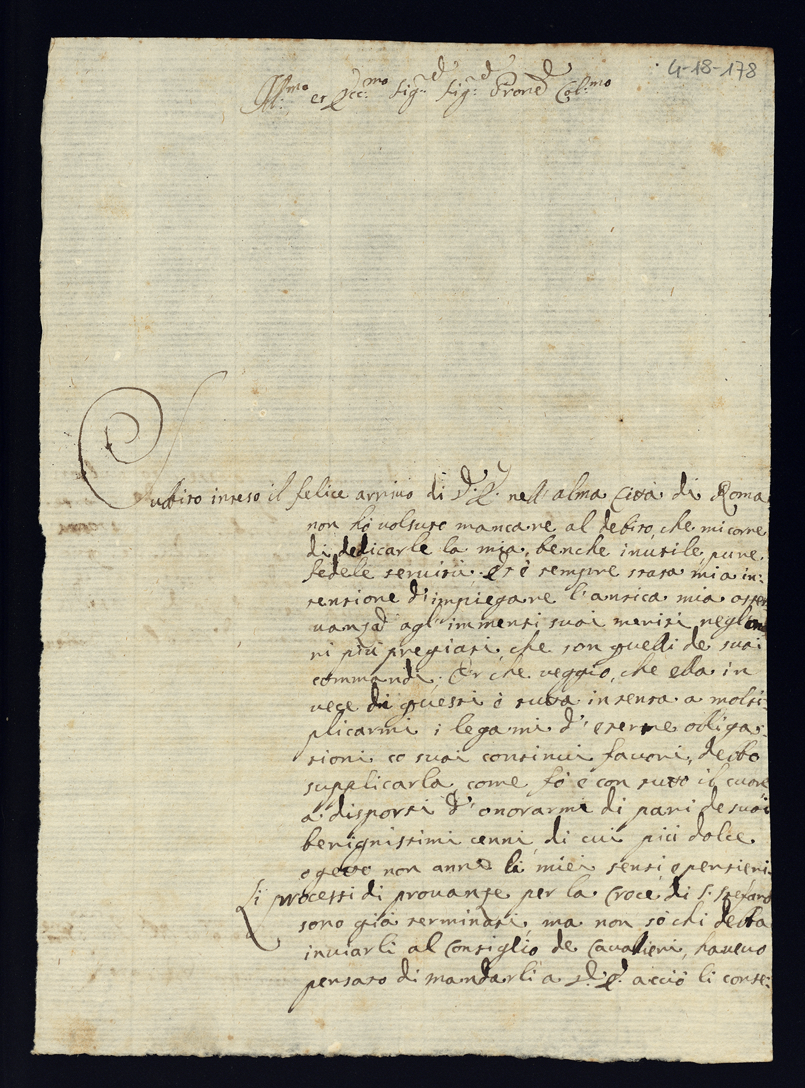 4-18-178
Ill.mo et Ecc.mo Sig.r Sig.r Prone Col.mo
Subito inteso il felice arrivo di V.E. nell'alma Città di Roma
non hò volsuto mancare al debito, che mi corre
di dedicarle la mia, benche inutile, pure
fedele servitù. Et è sempre stata mia in:
tentione d'impiegare l'antica mia osser
vanza agl'immensi suoi meriti negl'ono
ri più pregiati, che son quelli de suoi
commandi; Et che veggio, che ella in
vece di questi è tutta intenta a molti:
plicarmi i legami d'eterne obliga:
tioni co suoi continui favori, debbo
supplicarla, come fò è con tutto il cuore
a disporsi d'onorarmi di pari de suoi
benignissimi cenni, di cui più dolce
ogetto non anno li miei sensi, e pensieri.
Li processi di provanze per la Croce di S. Stefano
sono già terminati, ma non sò chi debba
inviarli al Consiglio de Cavalieri, havevo
pensato di mandarli a V.E. acciò li conse: